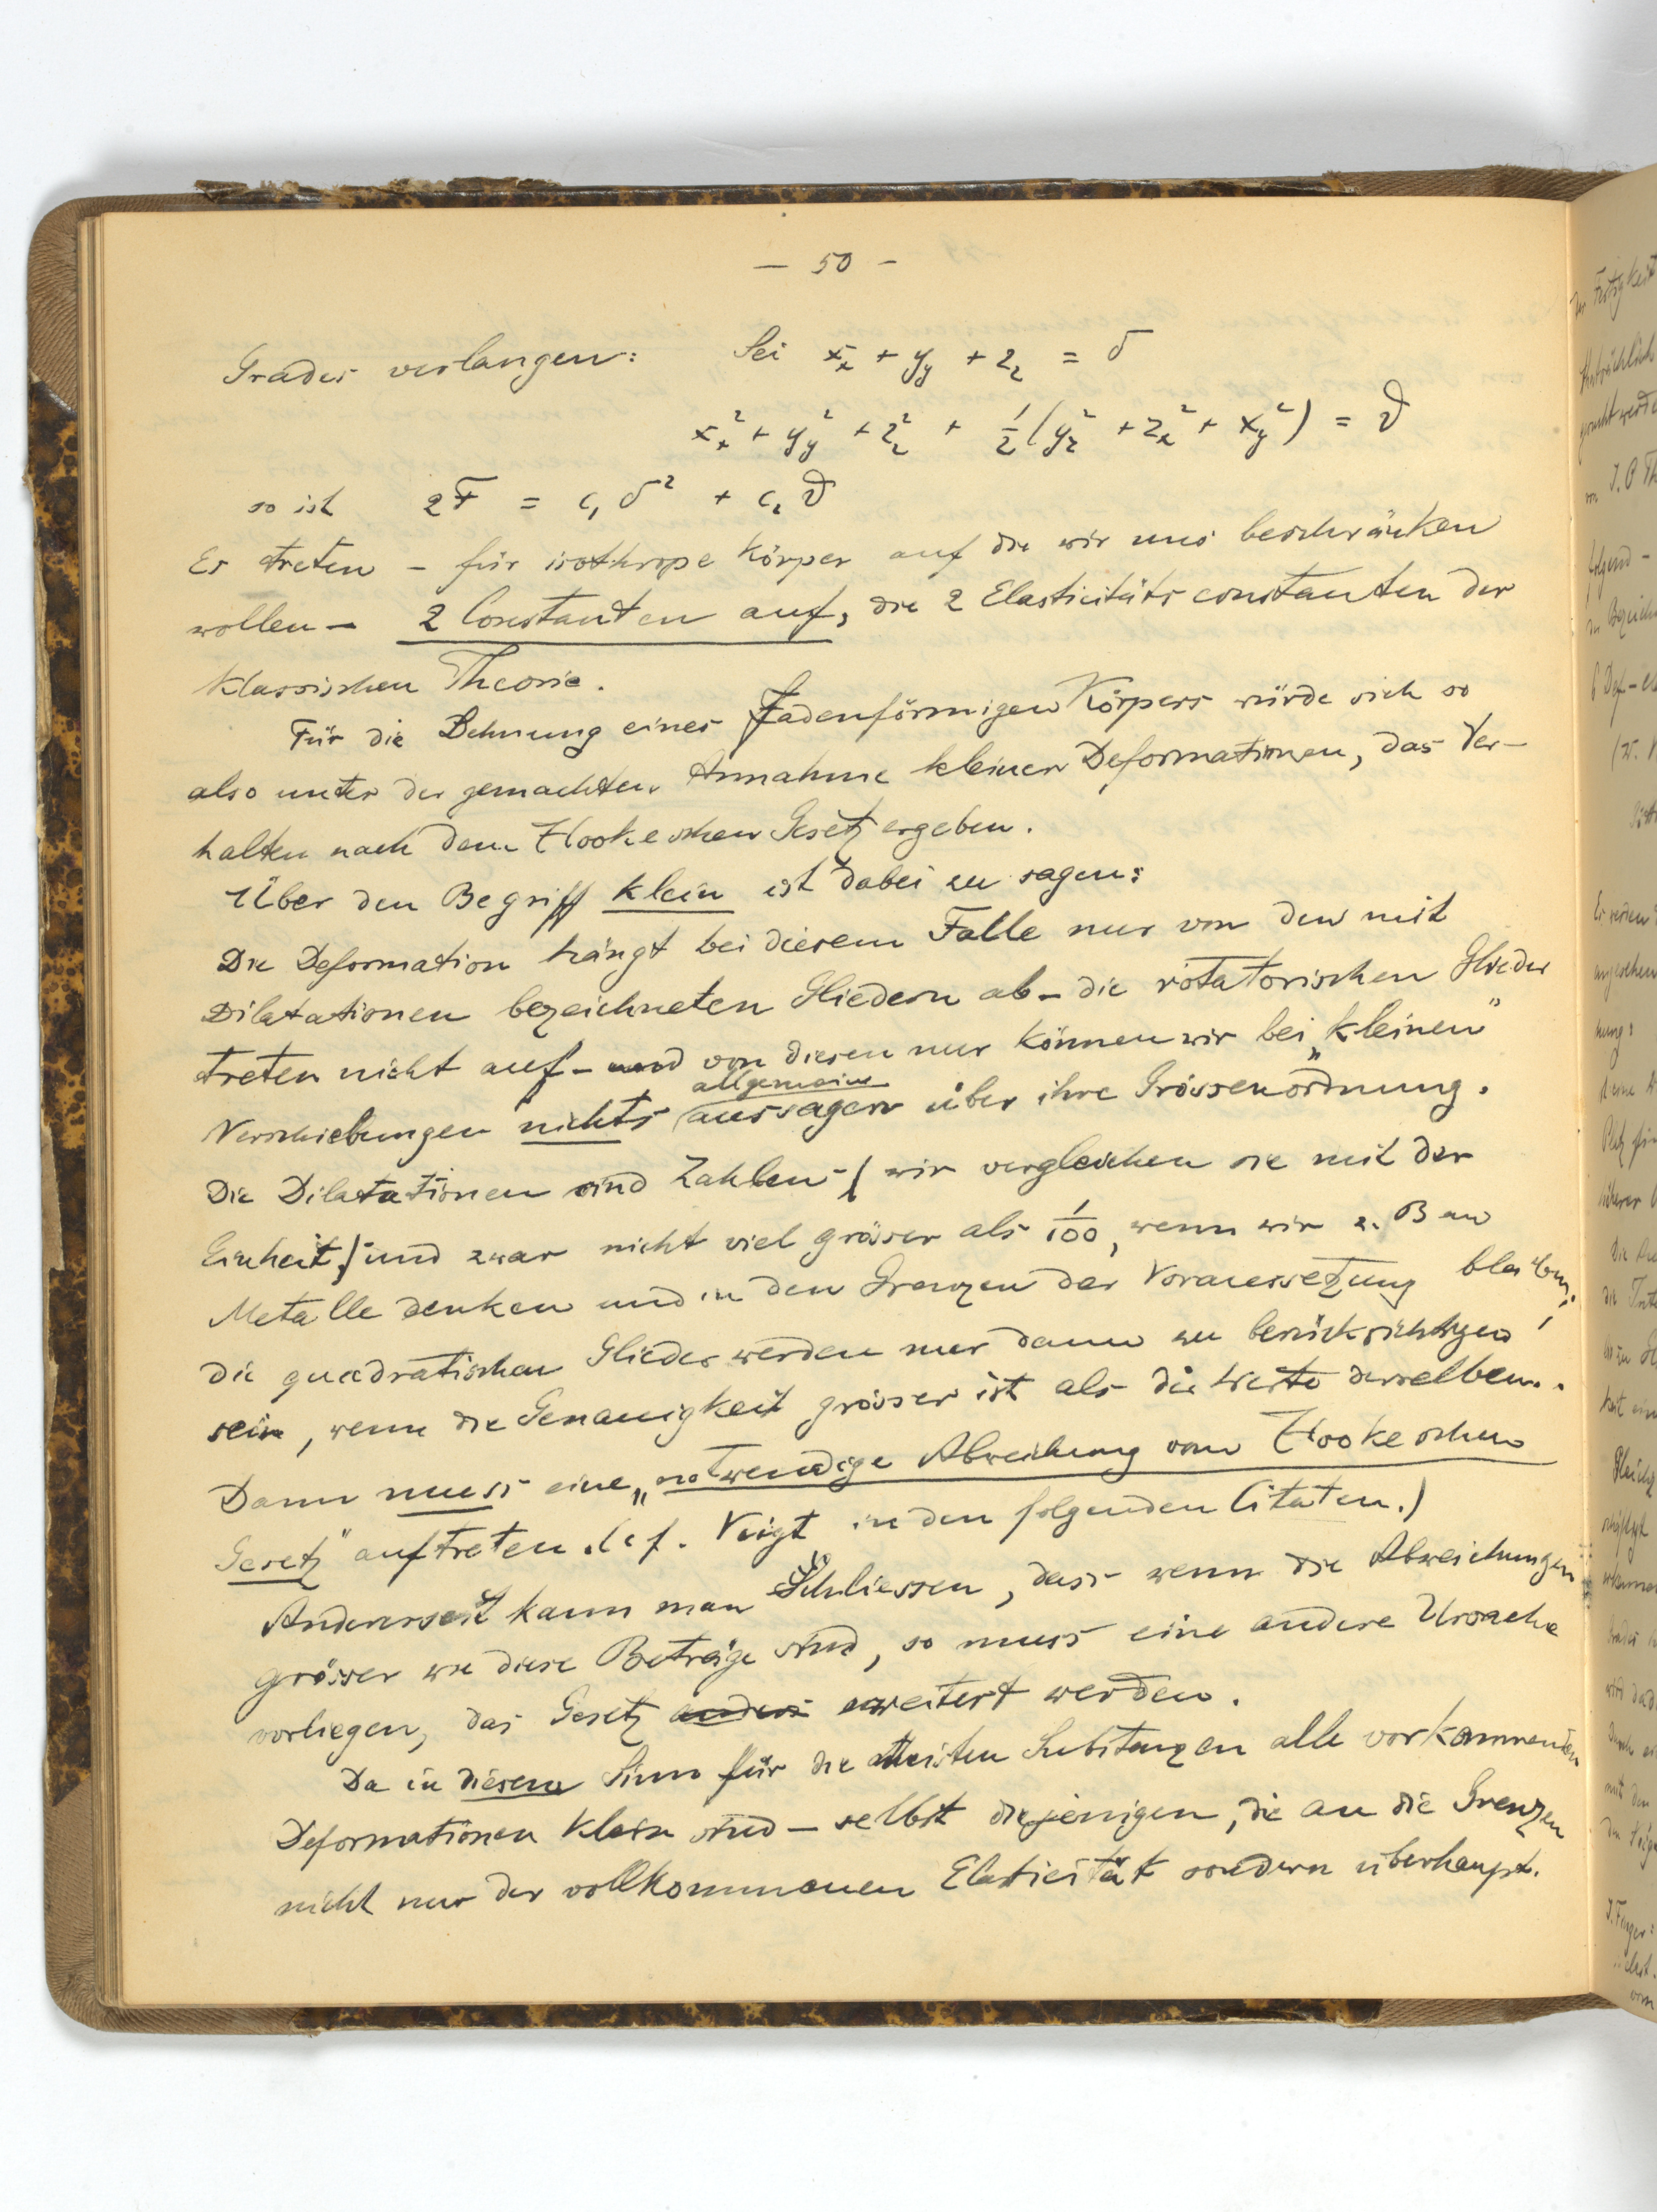 — 50 —
Grades verlangen: Sei x_x + y_y + z_z = δ
x_x² + y_y² + z_z² + 1/2 (y_z² + z_x² + x_y²) = ϑ
so ist 2F = c₁ δ² + c₂ ϑ
Es treten – für isothrope Körper auf die wir uns beschränken
wollen – 2 Constanten auf, die 2 Elasticitätsconstanten der
klassischen Theorie.
Für die Dehnung eines fadenförmigen Körpers würde sich so
also unter der gemachten Annahme kleiner Deformationen, das Ver-
halten nach dem Hookeschen Gesetz ergeben.
Über den Begriff klein ist dabei zu sagen:
Die Deformation hängt bei diesem Falle nur von den mit
Dilatationen bezeichneten Gliedern ab – die rotatorischen Glieder
treten nicht auf – und von diesen nur können wir bei „kleinen"
allgemeine
Verschiebungen nichts aussagen über ihre Grössenordnung.
Die Dilatationen sind Zahlen – (wir vergleichen sie mit der
Einheit) – und zwar nicht viel grösser als 1/100, wenn wir z. B an
Metalle denken und in den Grenzen der Voraussetzung bleiben;
die quadratischen Glieder werden nur dann zu berücksichtigen
sein, wenn die Genauigkeit grösser ist als die Werte derselben.
Dann muss eine „notwendige Abweichung vom Hookeschen
Gesetz" auftreten. (cf. Voigt in den folgenden Citaten.)
Anderseit kann man Schliessen, dass wenn die Abweichungen
grösser wie diese Beträge sind, so muss eine andere Ursache
vorliegen, das Gesetz anders erweitert werden.
Da in diesem Sinn für die meisten Substanzen alle vorkommenden
Deformationen klein sind – selbst diejenigen, die an die Grenzen
nicht nur der vollkommenen Elasticität sondern überhaupt.